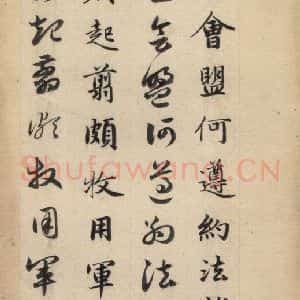 會盟何遵約法
會盟何遵約法
起翦頗牧用軍
起翦頗牧用軍
Shufawang.CN